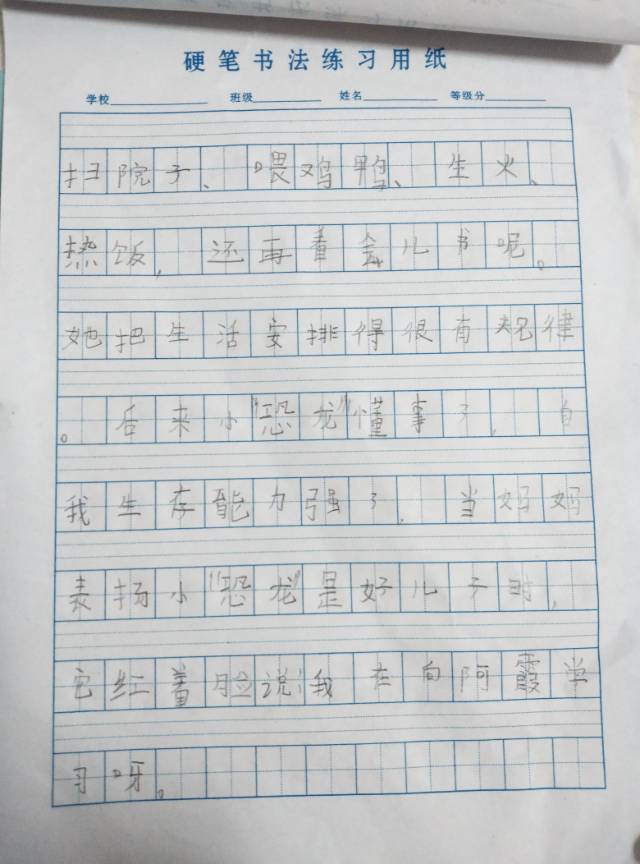 硬笔书法练习用纸
学校 班级 姓名 等级分
扫院子、喂鸡鸭、生火、
热饭,还再看会儿书呢。
她把生活安排得很有规律
。后来小“恐龙”懂事了,自
我生存能力强了,当妈妈
表扬小“恐龙”是好儿子时,
它红着脸说:我在向阿霞学
习呀。